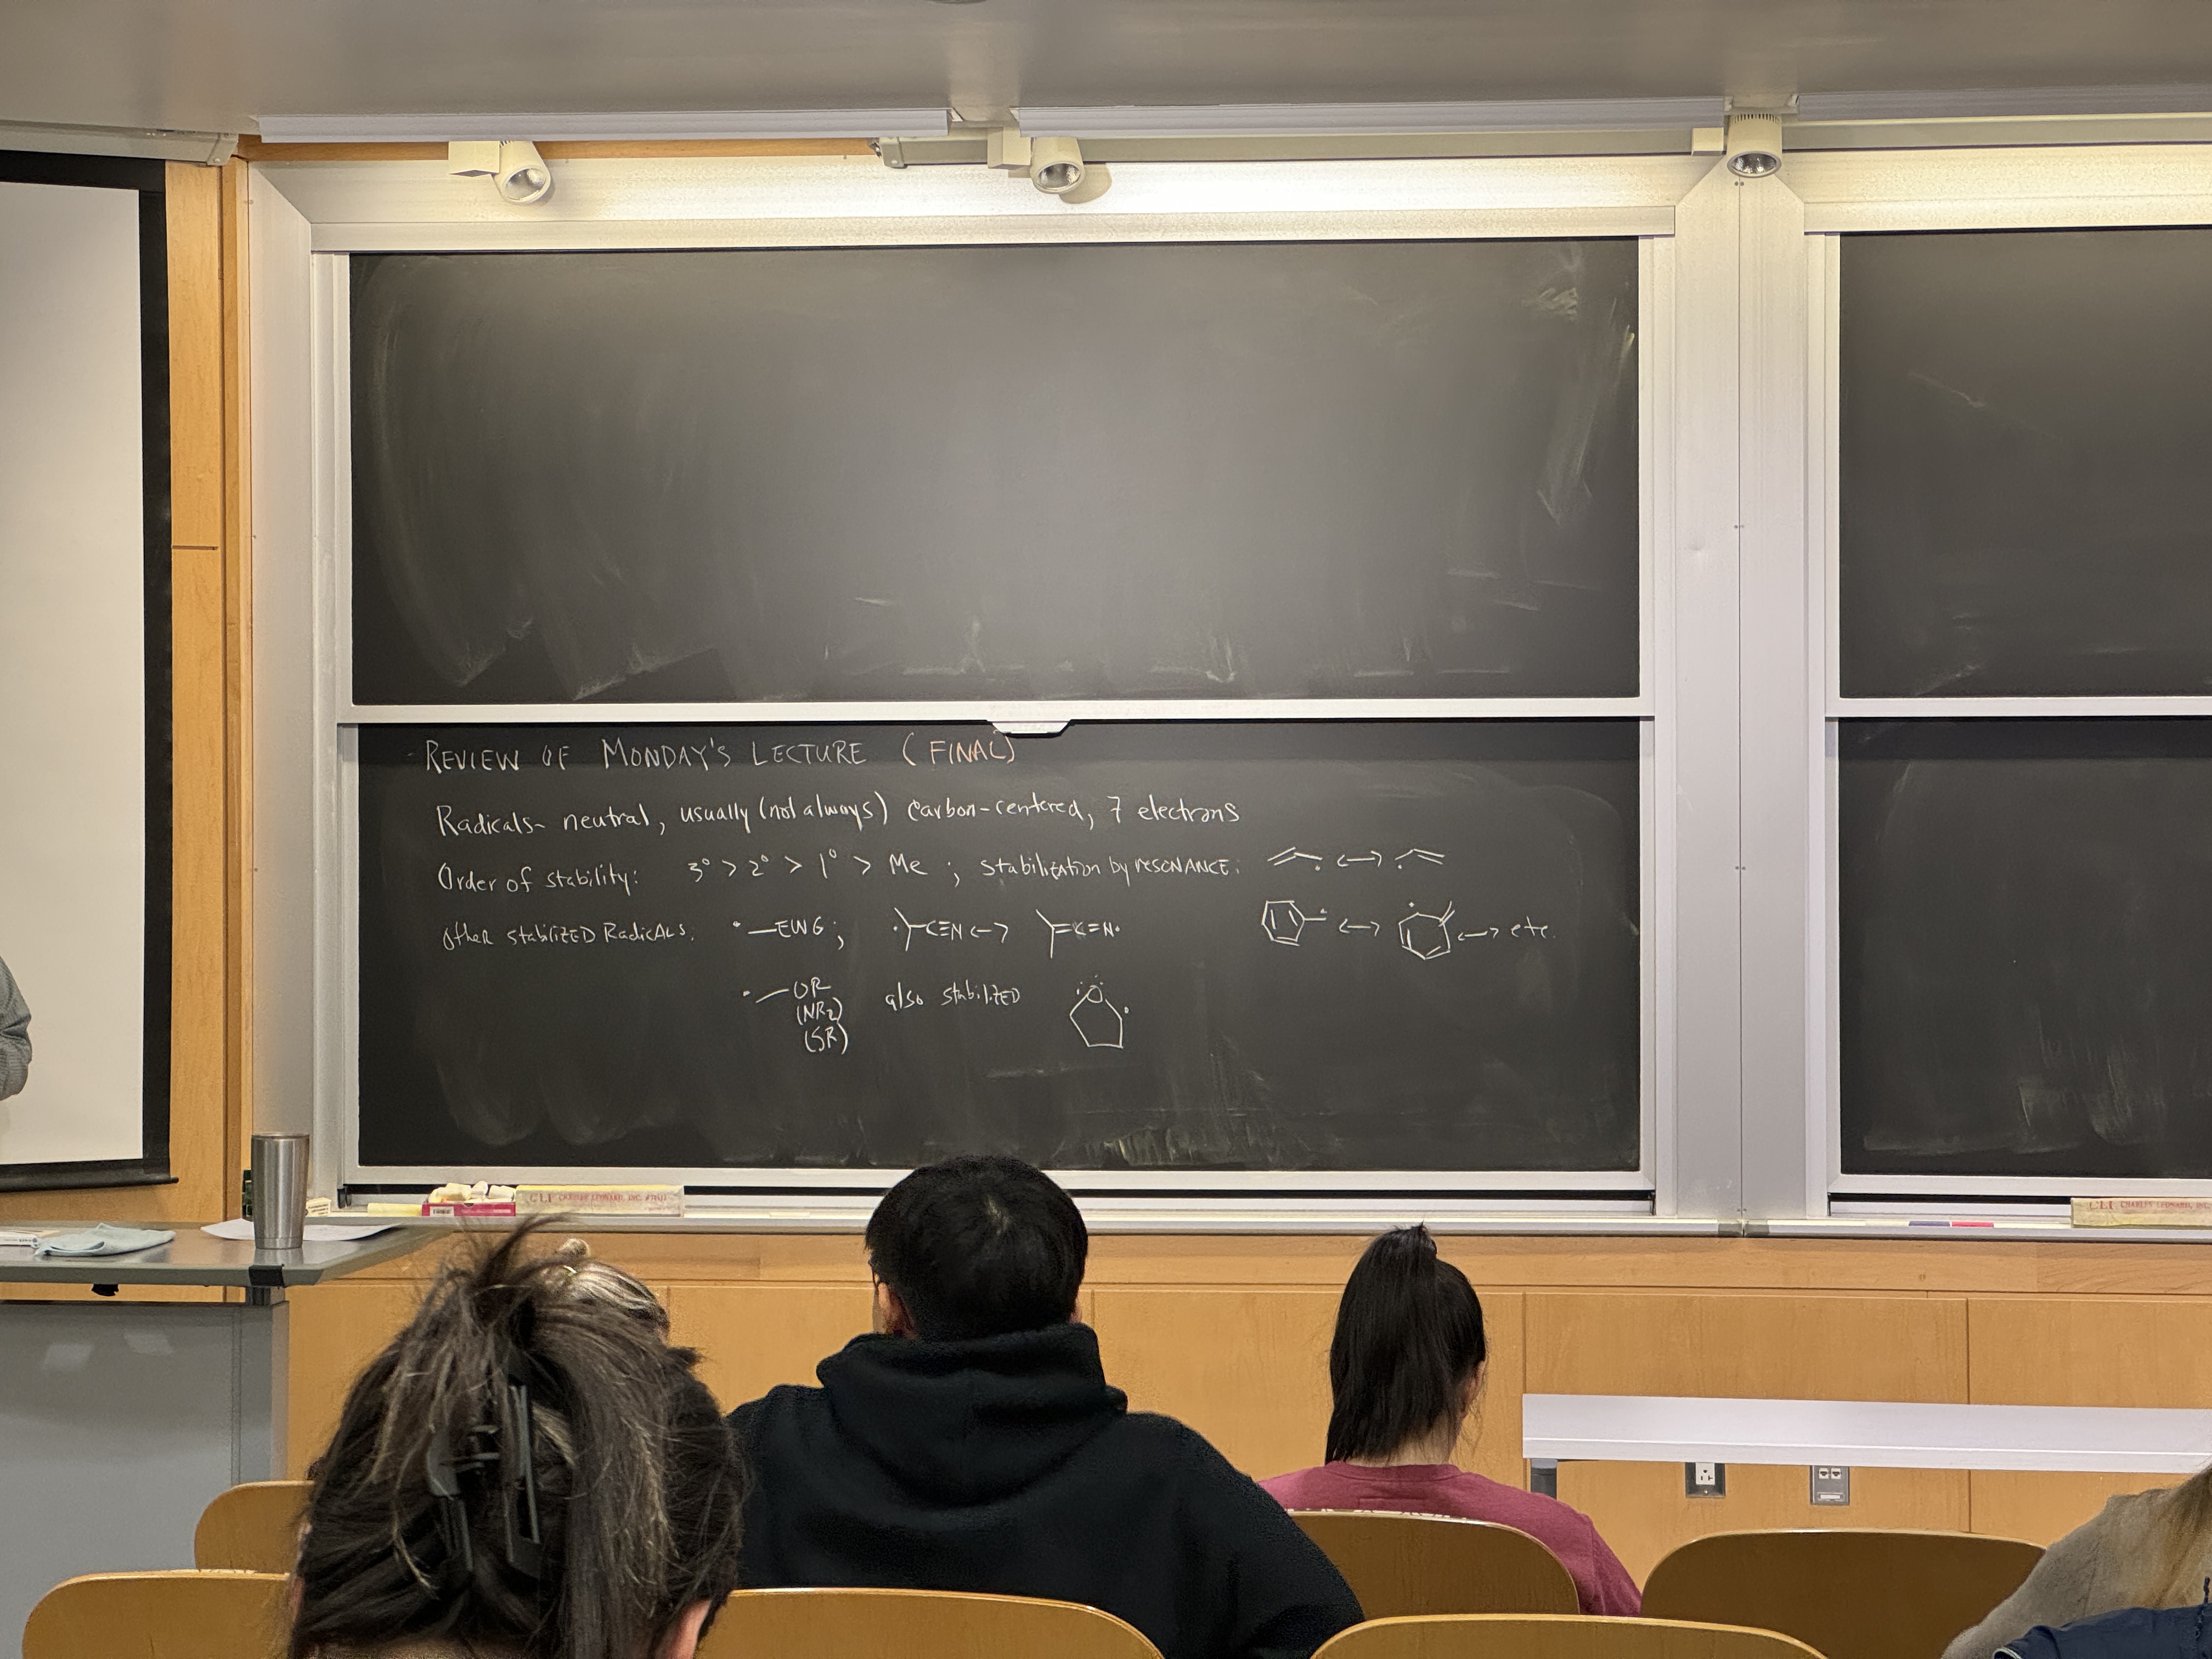 REVIEW OF MONDAY'S LECTURE (FINAL)
Radicals- neutral, usually (not always) carbon-centered, 7 electrons
Order of stability: 3° > 2° > 1° > Me ; stabilization by RESONANCE:
other stabilizED RadicALS: •—EWG; C≡N <—> C=N• <—> <—> etc.
•—OR also stabilizED O
(NR₂)
(SR)
CLI CHARLES LEONARD, INC.
CLI CHARLES LEONARD, INC.